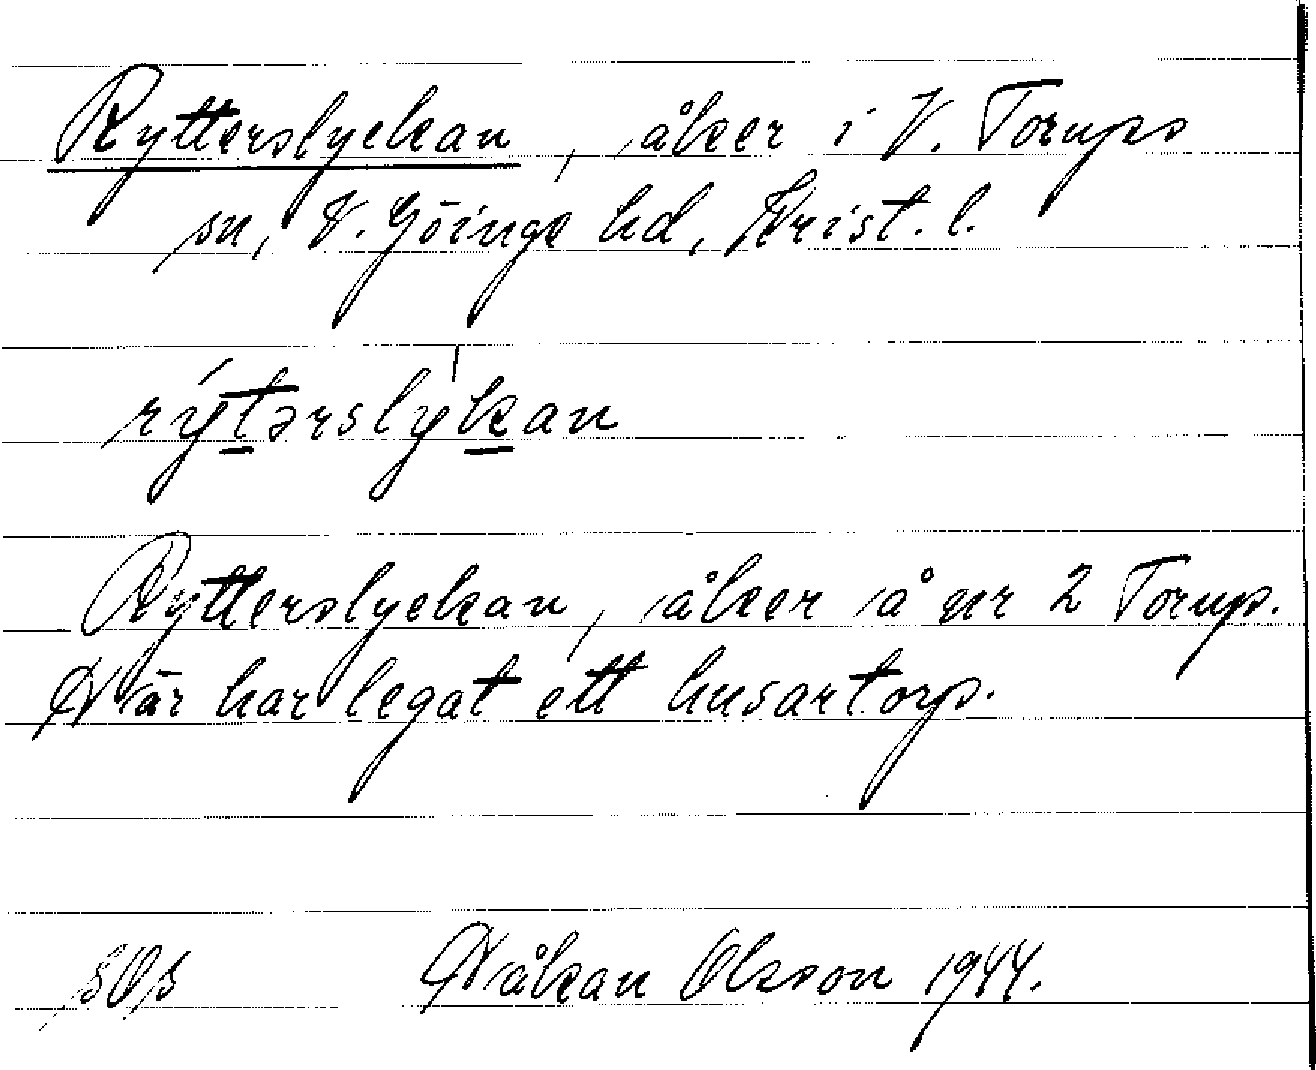 Rytterslyckan, åker i V. Torups
sn, V. Göinge hd, Krist. l.
rýtərslýkan
Rytterslyckan, åker å nr 2 Torup.
Här har legat ett husartorp.
Håkan Olsson 1944.